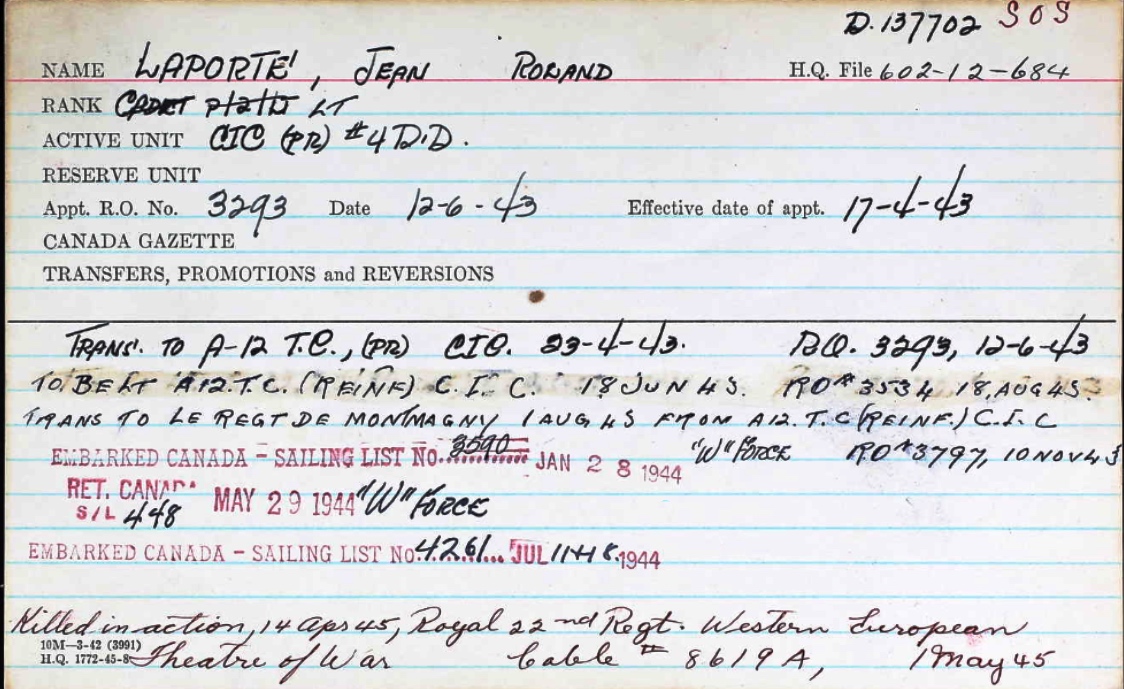 D.137702 SOS
NAME LAPORTE, JEAN ROLAND H.Q. File 602-12-684
RANK CADET P/2/Lt LT
ACTIVE UNIT CIC (PR) #4 D.D.
RESERVE UNIT
Appt. R.O. No. 3293 Date 12-6-43 Effective date of appt. 17-4-43
CANADA GAZETTE
TRANSFERS, PROMOTIONS and REVERSIONS
TRANS. TO A-12 T.C., (PR) CIC. 23-4-43. R.O. 3293, 12-6-43
TO BE LT A12.T.C. (REINF) C.I.C. 18 JUN 43. RO# 3534 18, AUG 43.
TRANS TO LE REGT DE MONTMAGNY 1 AUG 43 FROM A12.T.C (REINF.) C.I.C
EMBARKED CANADA - SAILING LIST NO. 3590 JAN 28 1944 "W" FORCE RO#3797, 10 NOV 43
RET. CANADA MAY 29 1944 "W" FORCE
S/L 448
EMBARKED CANADA - SAILING LIST No. 4261 JUL 11+18.1944
Killed in action, 14 Apr 45, Royal 22nd Regt. Western European
10M-3-42 (3991)
H.Q. 1772-45-8 Theatre of War Cable # 8619 A, 1 May 45